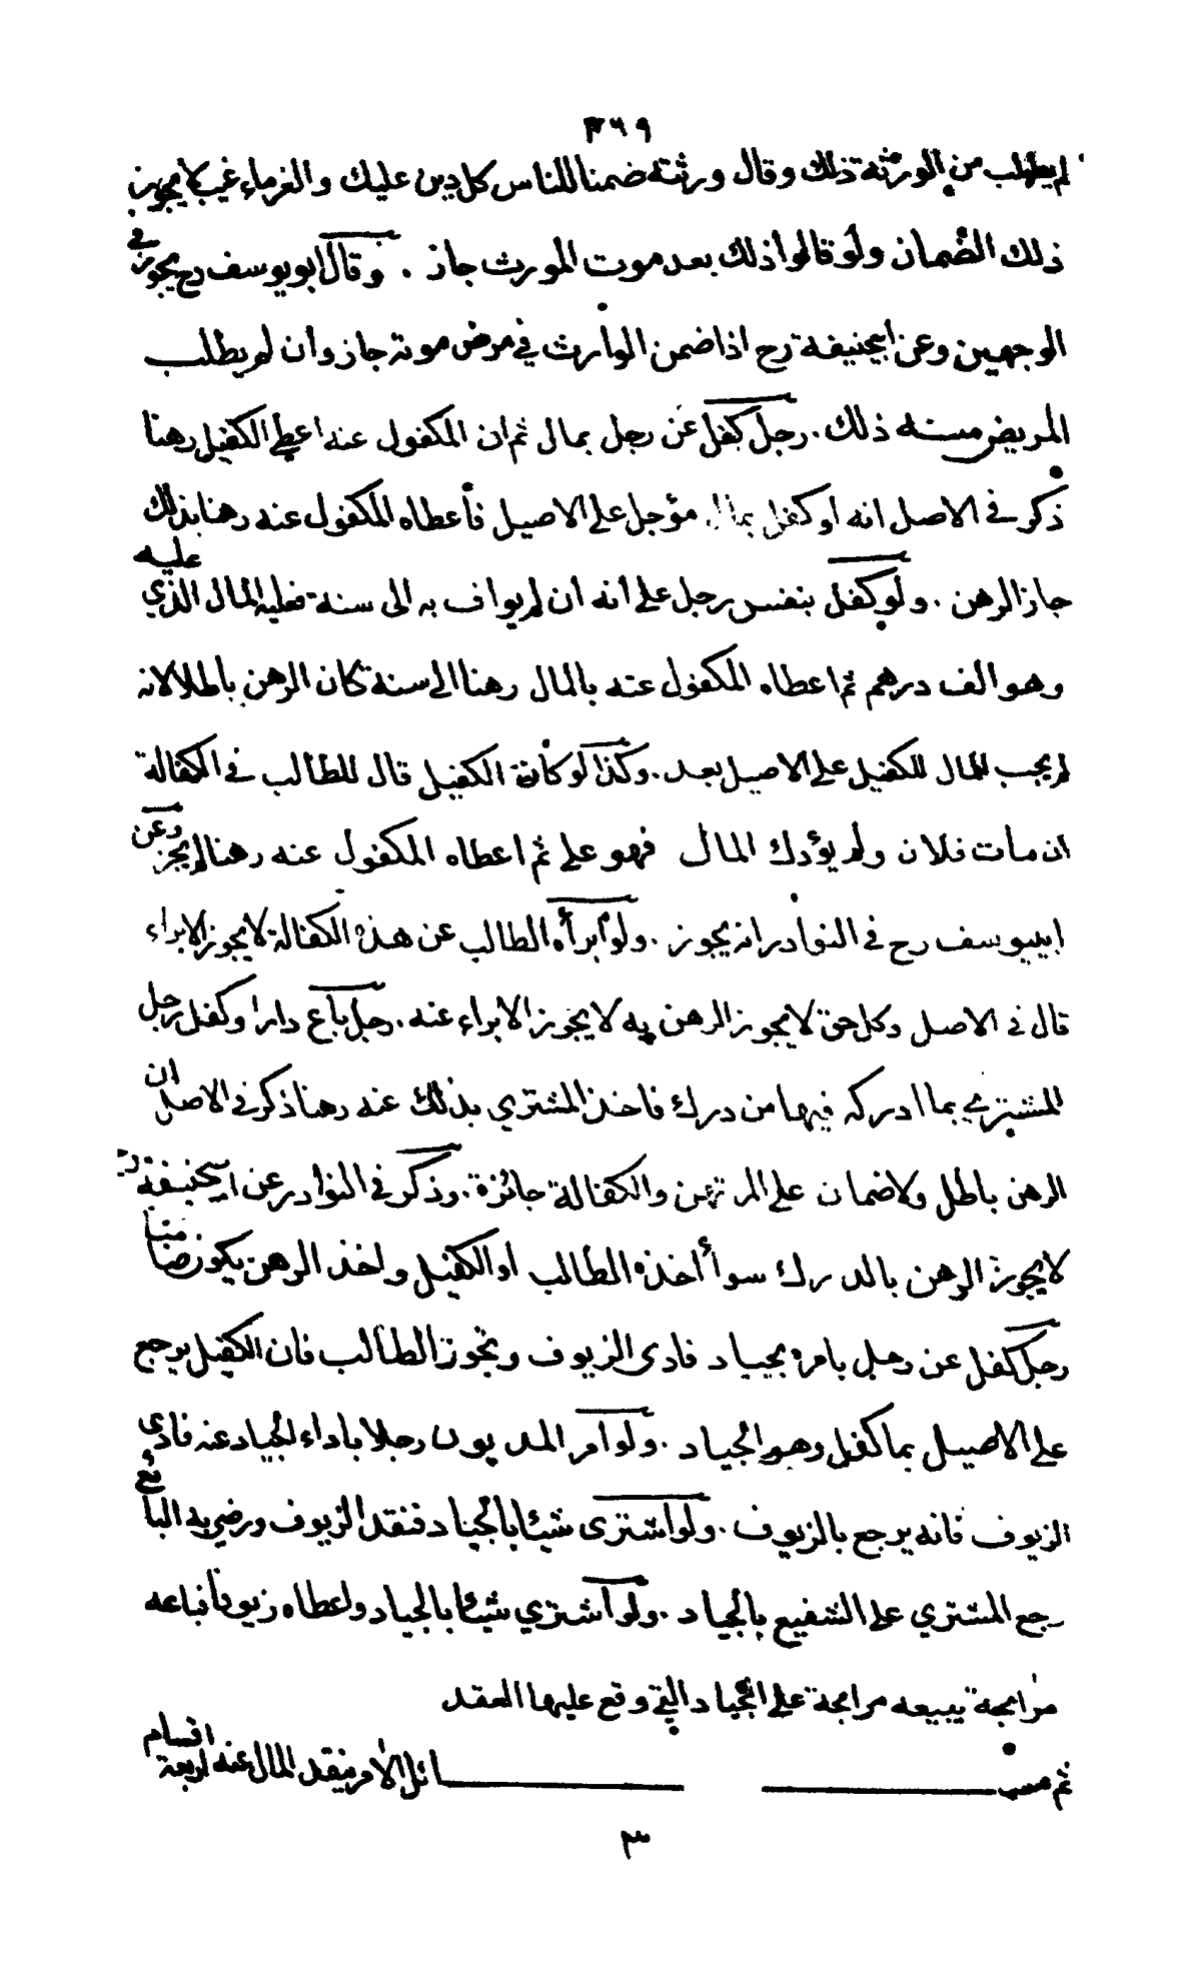 ٣٦٩
لم يطلب من الورثة ذلك وقال ورثته ضمنا للناس كل دين عليك والغرماء غيب لا يجوز
ذلك الضمان ولو قالوا ذلك بعد موت المورث جاز . وقال ابو يوسف رح يجوز في
الوجهين وعن ابيحنيفة رح اذا ضمن الوارث في مرض موته جاز وان لم يطلب
المريض منه ذلك . رجل كفل عن رجل بمال ثم ان المكفول عنه اعطى الكفيل رهنا
ذكر في الاصل انه لو كفل بمال مؤجل على الاصيل فأعطاه المكفول عنه رهنا بذلك
جاز الرهن . ولو كفل بنفس رجل على أنه ان لم يواف به الى سنة فعليه المال الذي عليه
وهو الف درهم ثم اعطاه المكفول عنه بالمال رهنا الى سنة كان الرهن باطلا لانه
لم يجب المال للكفيل على الاصيل بعد . وكذا لو كان الكفيل قال للطالب في الكفالة
ان مات فلان ولم يؤدك المال فهو علي ثم اعطاه المكفول عنه رهنا لم يجز وعن
ابييوسف رح في النوادر انه يجوز . ولو أبرأه الطالب عن هذه الكفالة لا يجوز الابراء
قال في الاصل وكل حق لا يجوز الرهن به لا يجوز الابراء عنه . رجل باع دارا وكفل رجل
للمشتري بما ادركه فيها من درك فاخذ المشتري بذلك عنه رهنا ذكر في الاصل ان
الرهن باطل ولا ضمان على المرتهن والكفالة جائزة . وذكر في النوادر عن ابيحنيفة رح
لا يجوز الرهن بالدرك سواأ اخذه الطالب او الكفيل واخذ الرهن يكون ضامنا
رجل كفل عن رجل بامره بجياد فادى الزيوف وتجوز الطالب فان الكفيل يرجع
على الاصيل بما كفل وهو الجياد . ولو أمر المديون رجلا باداء الجياد عنه فادى
الزيوف فانه يرجع بالزيوف . ولو اشترى شيئا بالجياد فنقد الزيوف ورضي به البائع
رجع المشتري على الشفيع بالجياد . ولو اشترى شيئا بالجياد واعطاه زيوفا فباعه
مرابحة يبيعه مرابحة على الجياد التي وقع عليها العقد
ثم مسائل الأمر بنقد المال عنه اربعة اقسام
٣